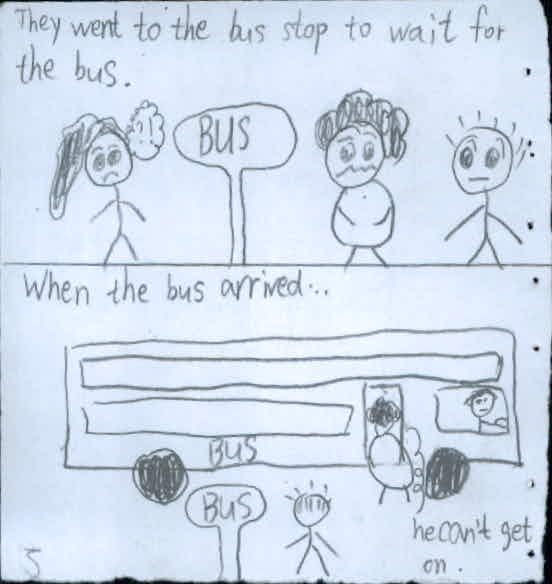 They went to the bus stop to wait for
the bus.
?!
BUS
When the bus arrived...
BUS
BUS
he can't get
on.
5